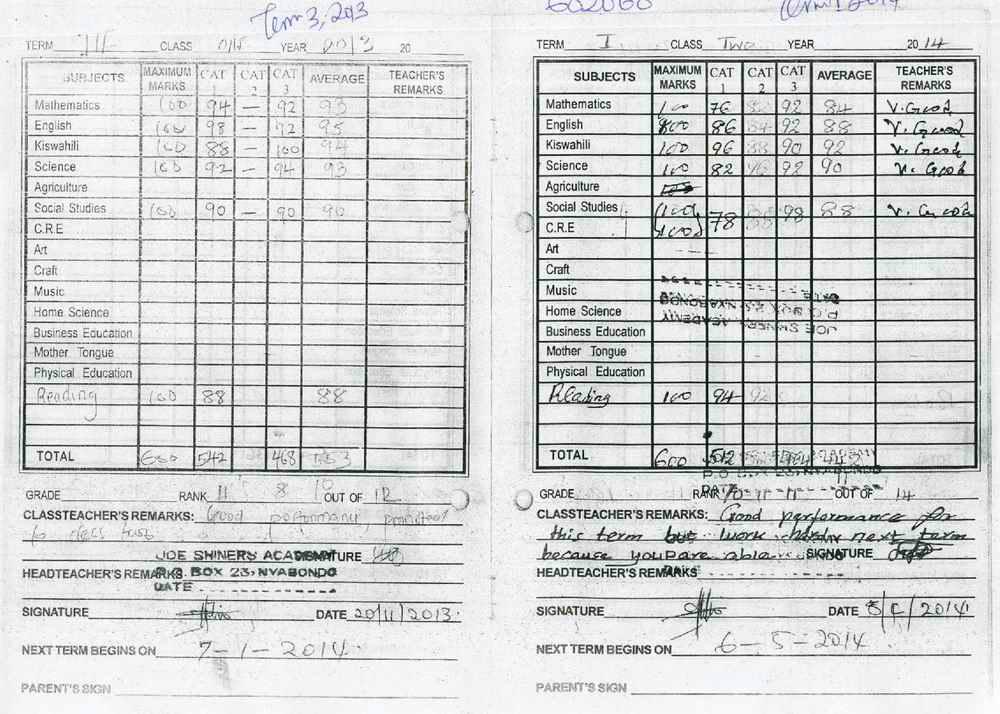 Term 3, 2013
TERM III CLASS ONE YEAR 2013 20
SUBJECTS MAXIMUM MARKS CAT 1 CAT 2 CAT 3 AVERAGE TEACHER'S REMARKS
Mathematics 100 94 — 92 93
English 100 98 — 92 95
Kiswahili 100 88 — 100 94
Science 100 92 — 94 93
Agriculture
Social Studies 100 90 — 90 90
C.R.E
Art
Craft
Music
Home Science
Business Education
Mother Tongue
Physical Education
Reading 100 88 88
TOTAL 600 542 468 553
GRADE RANK 11 8 10 OUT OF 12
CLASSTEACHER'S REMARKS: Good performance, promoted
to class two
JOE SHINERS ACADEMY SIGNATURE
HEADTEACHER'S REMARKS P.O. BOX 23, NYABONDO
DATE
SIGNATURE DATE 20/11/2013.
NEXT TERM BEGINS ON 7-1-2014.
PARENT'S SIGN
Term 1 2014
TERM I CLASS Two YEAR 2014
SUBJECTS MAXIMUM MARKS CAT 1 CAT 2 CAT 3 AVERAGE TEACHER'S REMARKS
Mathematics 100 76 92 84 V. Good
English 100 86 84 92 88 V. Good
Kiswahili 100 96 88 90 92 V. Good
Science 100 82 96 92 90 V. Good
Agriculture
Social Studies 100 78 98 88 V. Good
C.R.E 100
Art
Craft
Music
Home Science
Business Education
Mother Tongue
Physical Education
Reading 100 94 92
TOTAL 600 512
GRADE RANK 10-11-11 OUT OF 14
CLASSTEACHER'S REMARKS: Good performance for
this term but work hard next term
because you are able SIGNATURE
HEADTEACHER'S REMARKS
SIGNATURE DATE 2014
NEXT TERM BEGINS ON 6-5-2014
PARENT'S SIGN